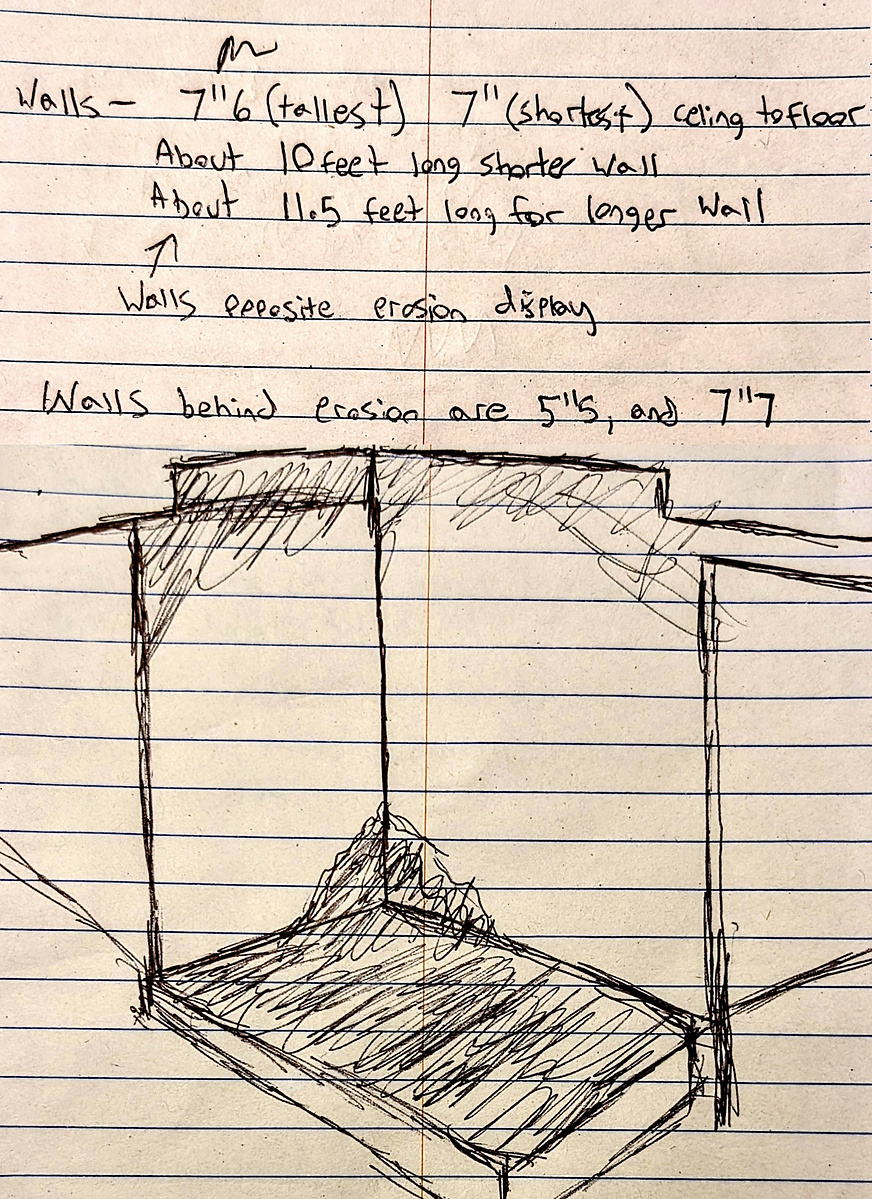 Walls - 7"6 (tallest) 7" (shortest) celing to floor
About 10 feet long shorter wall
About 11.5 feet long for longer wall
Walls opposite erosion display
Walls behind erosion are 5"5, and 7"7